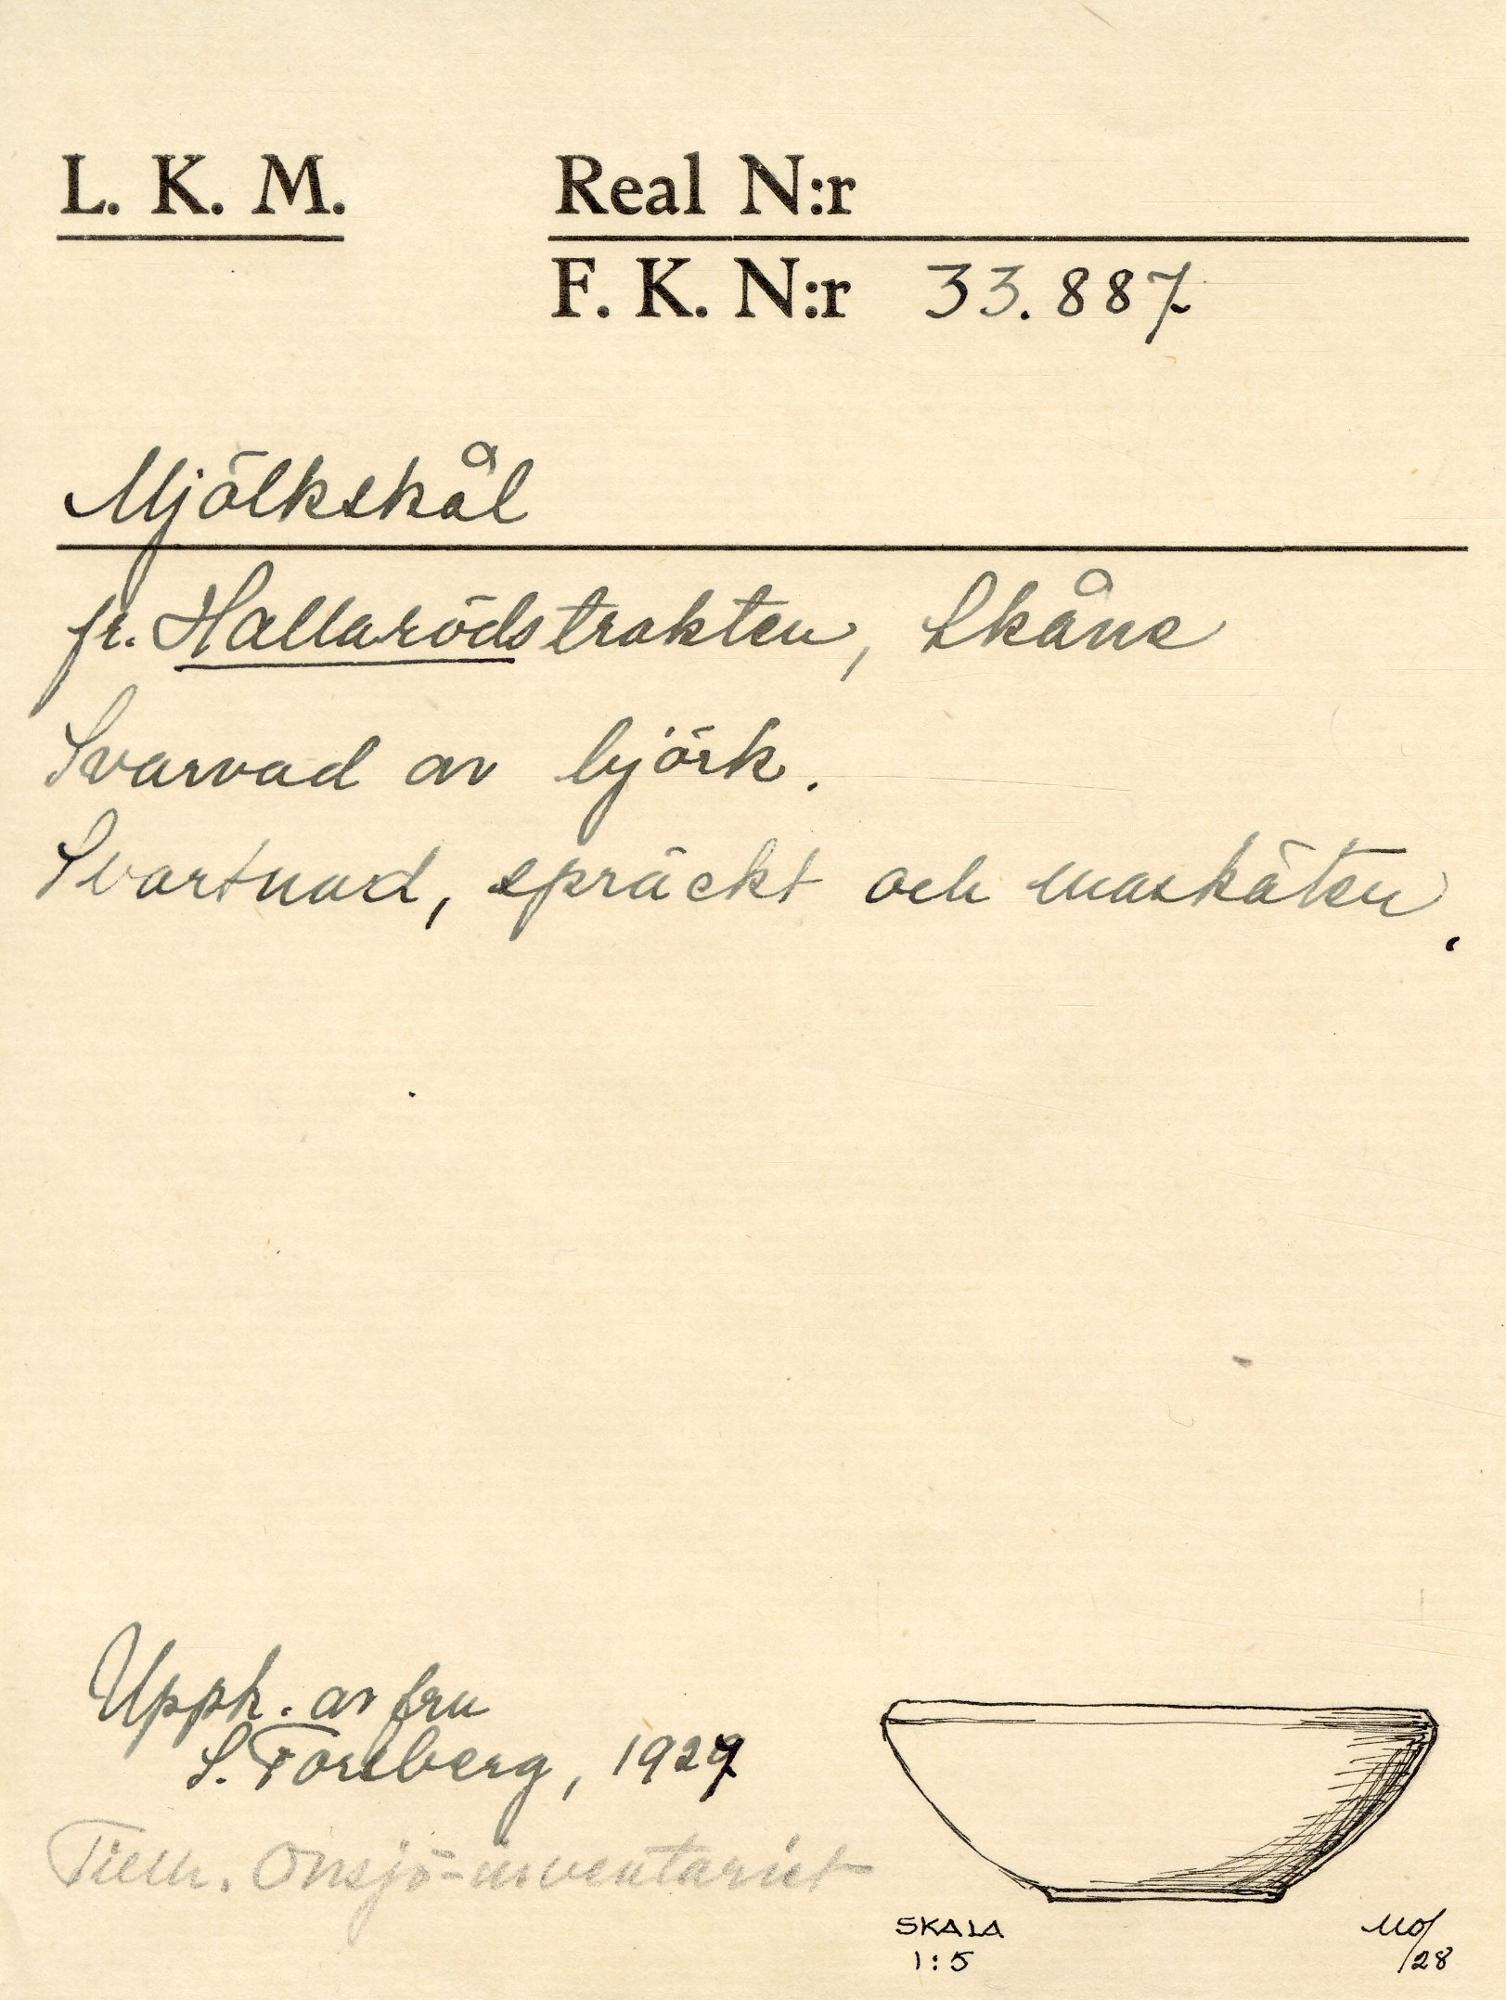 L. K. M. Real N:r
F. K. N:r 33.887
Mjölkskål
fr. Hallarödstrakten, Skåne
Svarvad av björk.
Svartnad, spräckt och maskäten.
Upph. av fru
S. Forsberg, 1927
Tillh. Onsjö-inventariet
SKALA
1:5
MO/28